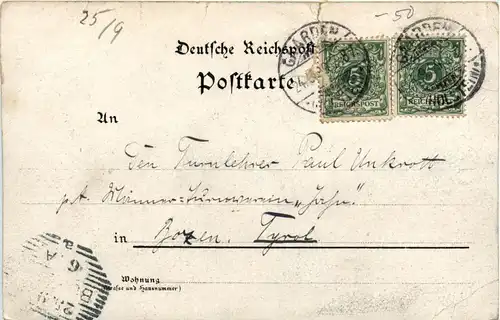 25/9
-50
Deutsche Reichspost
Postkarte
GAARDEN
5 5
REICHSPOST REICHSPOST
An
Den Turnlehrer Paul Unkroth
p. A. Männer-Turnverein „Jahn“
in Bozen. Tyrol
Wohnung
(Strasse und Hausnummer)